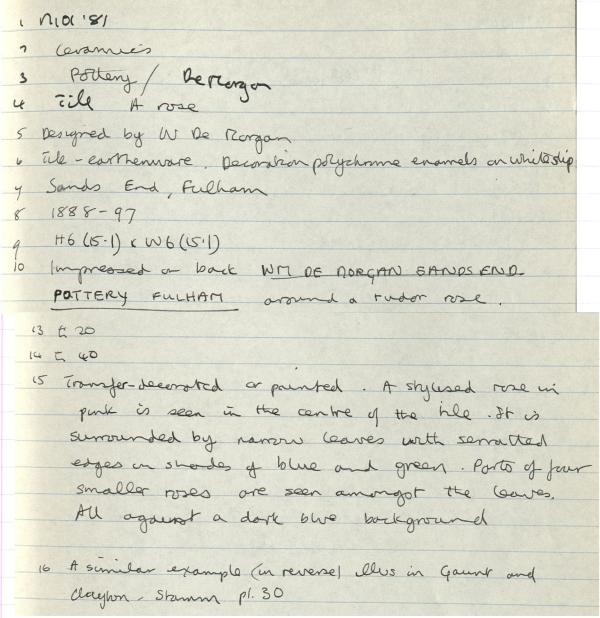 1
2 Ceramics
3 Pottery / De Morgan
4 Tile A rose
5 Designed by W De Morgan
6 Tile - earthenware. Decoration polychrome enamels on white slip
7 Sands End, Fulham
8 1888-97
9 H6 (15.1) x W6 (15.1)
10 Impressed on back WM DE MORGAN SANDS END
POTTERY FULHAM around a tudor rose.
13 £ 20
14 £ 40
15 Transfer-decorated or painted. A stylised rose in
pink is seen in the centre of the tile. It is
surrounded by narrow leaves with serrated
edges in shades of blue and green. Parts of four
smaller roses are seen amongst the leaves.
All against a dark blue background
16 A similar example (in reverse) illus in Gaunt and
Clayton-Stamm pl. 30